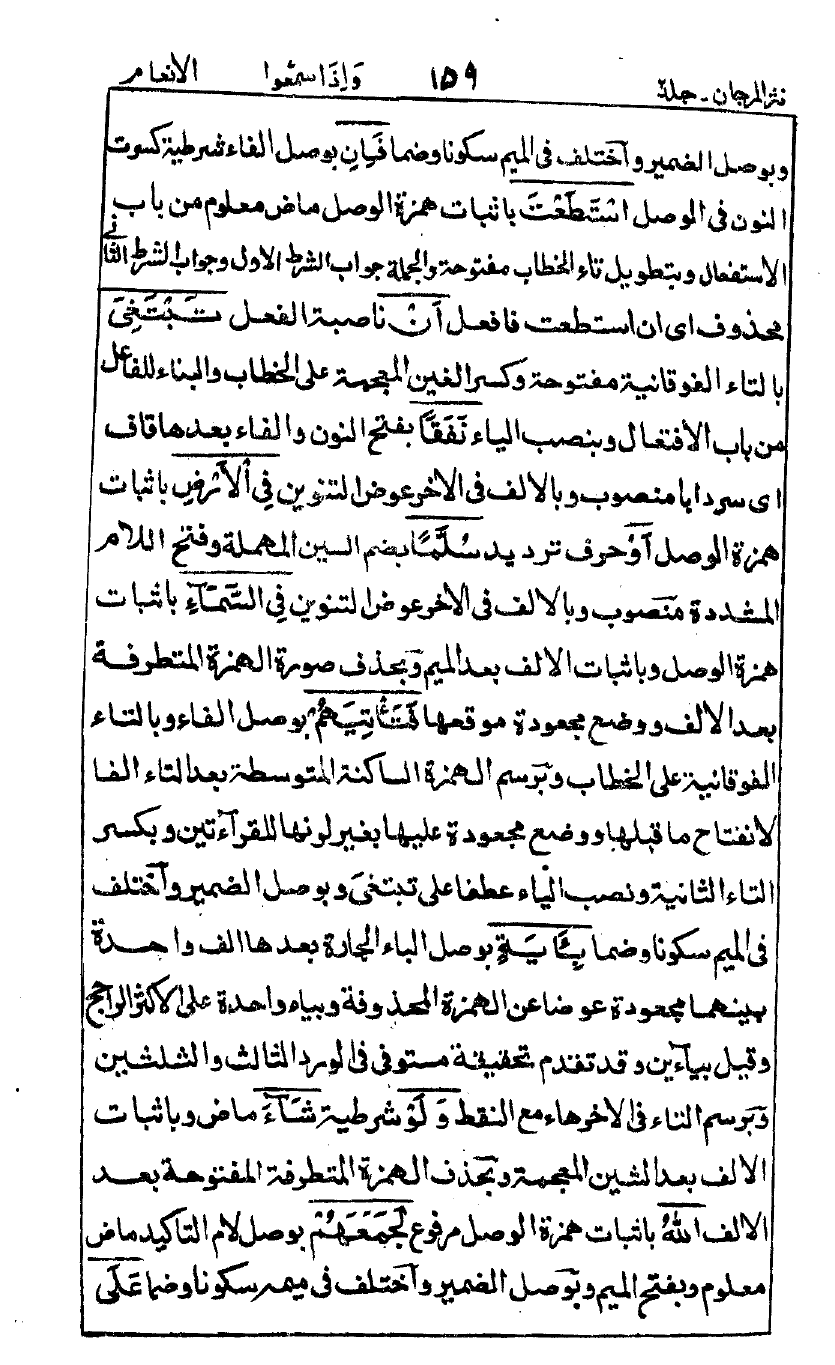 نثر المرجان - جلد ٢ ١٥٩ وَاِذَا سمعُوا الانعام
وبوصل الضمير واختلف فى الميم سكونا وضما فَاِنِ بوصل الفاء شرطية كسرت
النون فى الوصل اسْتَطَعْتَ باثبات همزة الوصل ماض معلوم من باب
الاستفعال وبتطويل تاء الخطاب مفتوحة والجملة جواب الشرط الاول وجواب الشرط الثانى
محذوف اى ان استطعت فافعل اَنْ ناصبة الفعل تَبْتَغِىَ
بالتاء الفوقانية مفتوحة وكسر الغين المعجمة على الخطاب والبناء للفاعل
من باب الافتعال وبنصب الياء نَفَقًا بفتح النون والفاء بعدها قاف
اى سردابا منصوب وبالالف فى الاخر عوض التنوين فِى الْاَرْضِ باثبات
همزة الوصل اَوْ حرف ترديد سُلَّمًا بضم السين المهملة وفتح اللام
المشددة منصوب وبالالف فى الاخر عوض التنوين فِى السَّمَآءِ باثبات
همزة الوصل وباثبات الالف بعد الميم وبحذف صورة الهمزة المتطرفة
بعد الالف ووضع مجعودة موقعها فَتَاْتِيَهُمْ بوصل الفاء وبالتاء
الفوقانية على الخطاب وبرسم الهمزة الساكنة المتوسطة بعد التاء الفا
لانفتاح ما قبلها ووضع مجعودة عليها بغير لونها للقرآءتين وبكسر
التاء الثانية ونصب الياء عطفا على تبتغى وبوصل الضمير واختلف
فى الميم سكونا وضما بِـَٔايَةٍ بوصل الباء الجارة بعدها الف واحدة
بينهما مجعودة عوضا عن الهمزة المحذوفة وبياء واحدة على الاكثر الراجح
وقيل بياءين وقد تقدم تحقيقه مستوفى فى الورد الثالث والثلثين
وبرسم التاء فى الاخر هاء مع النقط وَلَوْ شرطية شَآءَ ماض وباثبات
الالف بعد الشين المعجمة وبحذف الهمزة المتطرفة المفتوحة بعد
الالف اللّٰهُ باثبات همزة الوصل مرفوع لَجَمَعَهُمْ بوصل لام التاكيد ماض
معلوم وبفتح الميم وبوصل الضمير واختلف فى ميمه سكونا وضما عَلَى